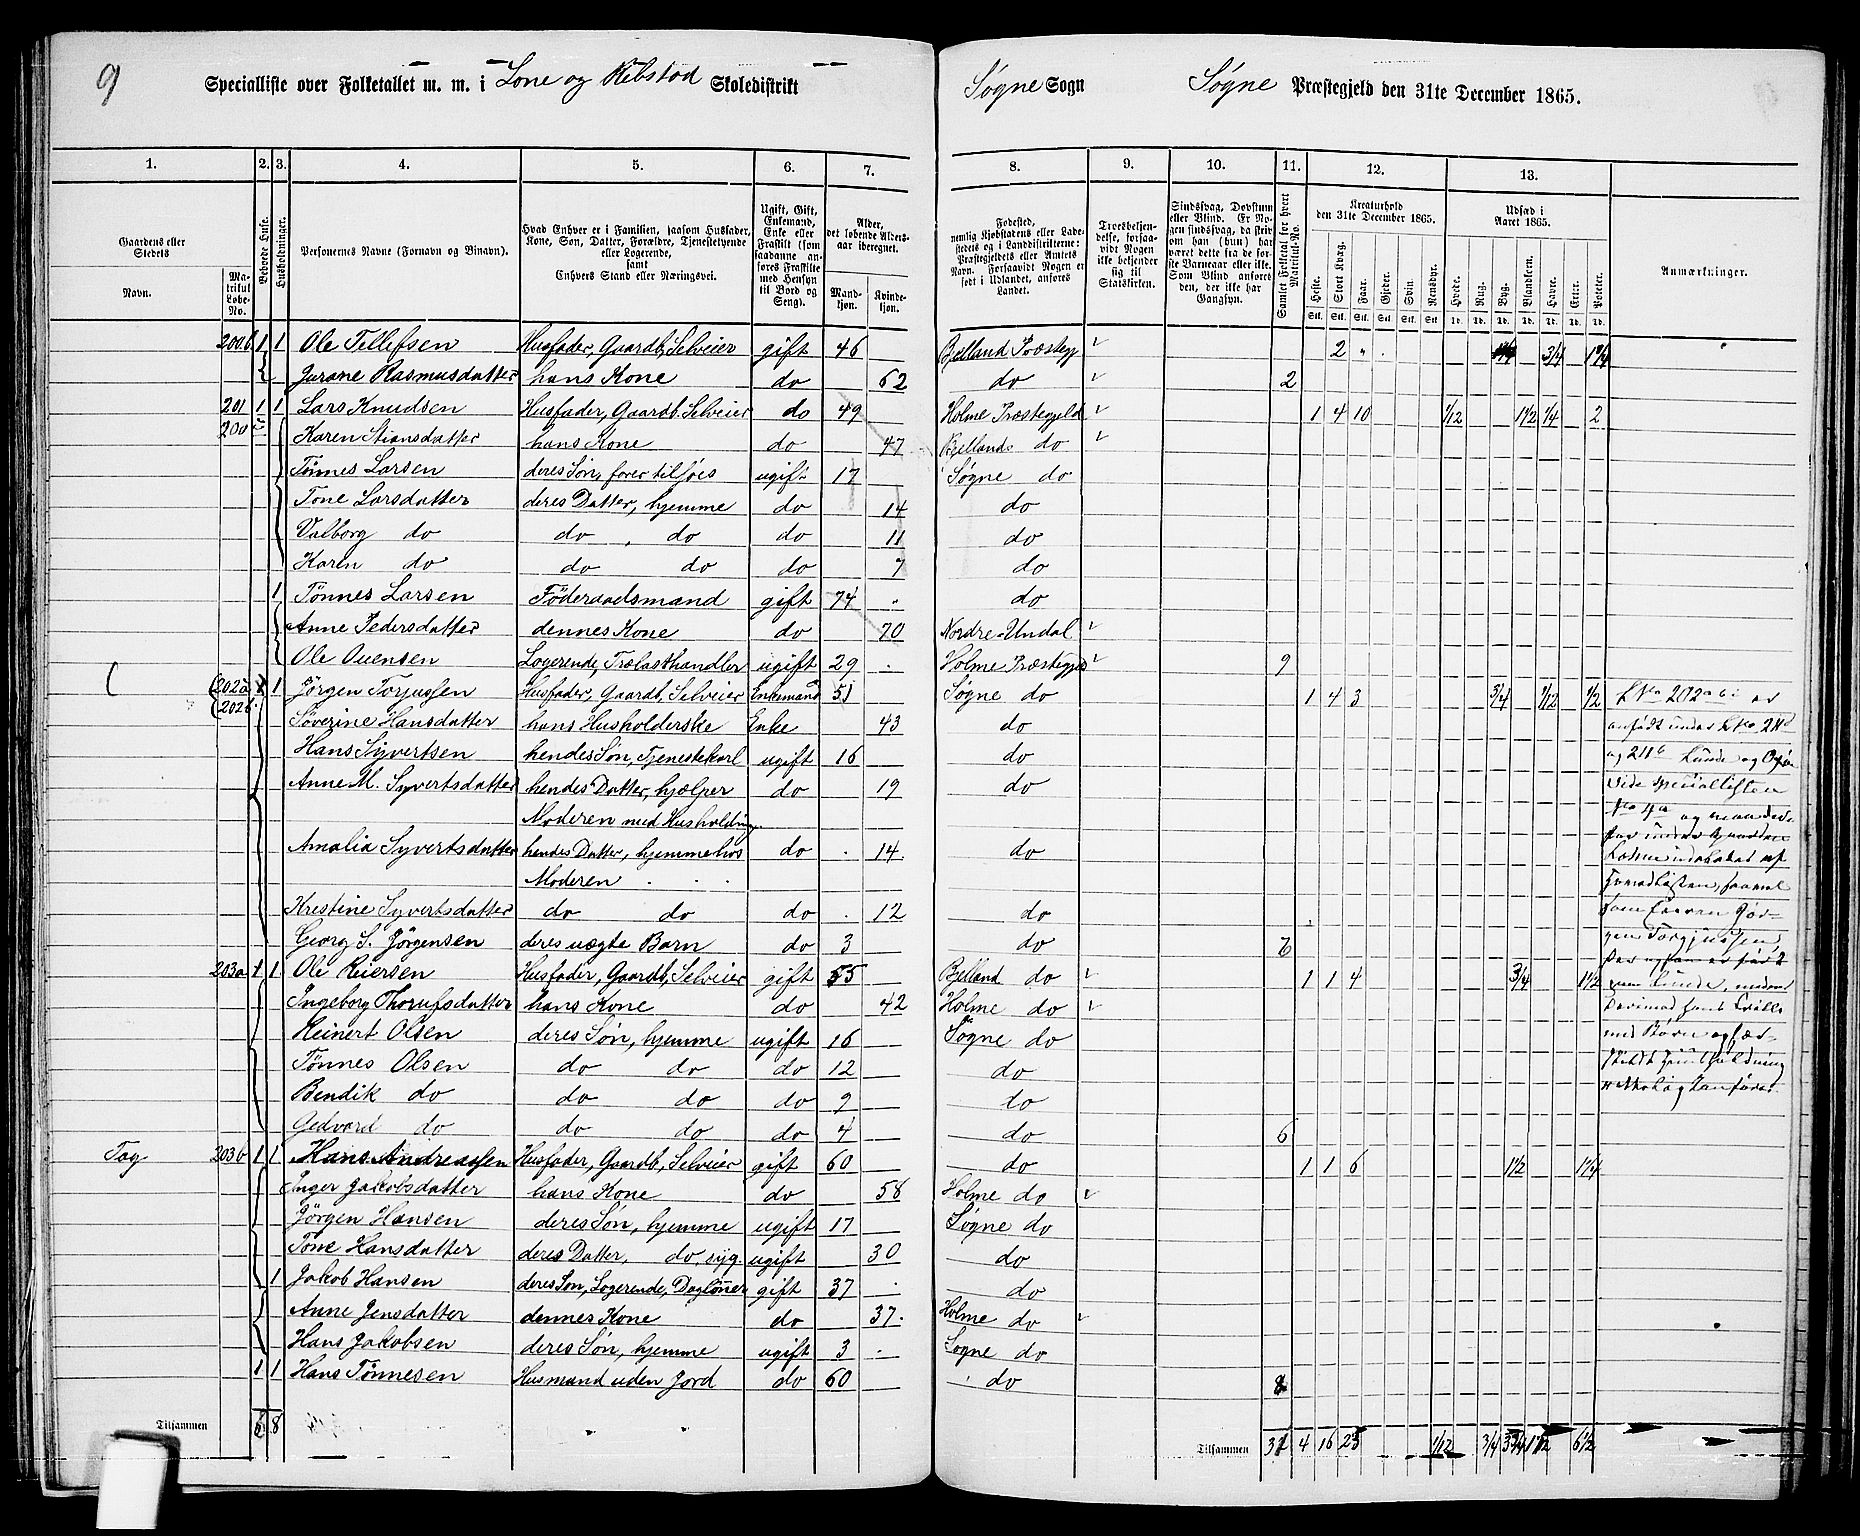 9 Specialliste over Folketallet m. m. i Lone og Rebstad Skoledistrikt Søgne Sogn Søgne Præstegjeld den 31te December 1865.
1. 2. 3. 4. 5. 6. 7. 8. 9. 10. 11. 12. 13.
Gaardens eller Stedets Navn. Matrikul Løbe-No. Beboede Huse. Husholdninger. Personernes Navne (Fornavn og Binavn). Hvad Enhver er i Familien, saasom Husfader, Kone, Søn, Datter, Forældre, Tjenestetyende eller Logerende, samt Enhvers Stand eller Næringsvei. Ugift, Gift, Enkemand, Enke eller Fraskilt (som saadanne anføres Fraskilte med Hensyn til Bord og Seng). Alder, det løbende Aldersaar iberegnet. Mandkjøn. Kvindekjøn.
Fødested, nemlig Kjøbstadens eller Ladestedets og i Landdistrikterne: Præstegjeldets eller Amtets Navn. Forsaavidt Nogen er født i Udlandet, anføres Landet. Troesbekjendelse, forsaavidt Nogen ikke bekjender sig til Statskirken. Sindssvag, Døvstum eller Blind. Er Nogen sindssvag, da skriv om han (hun) har været dette fra de første Barneaar eller ikke. Som Blind anføres den, der ikke har Gangsyn. Samlet Folketal for hvert Matrikul-No. Kreaturhold den 31te December 1865. Heste. Stort Kvæg. Faar. Gjeder. Svin. Rensdyr. Udsæd i Aaret 1865. Hvede. Rug. Byg. Blandkorn. Havre. Erter. Poteter. Anmærkninger.
200b 1 1 Ole Tellefsen Husfader, Gaardb, Selveier gift 46 Bjelland Præstegj 2 3/4 1 1/4
Jurane Rasmusdatter hans Kone do 62 do 2
201 1 1 Lars Knudsen Husfader, Gaardb. Selveier do 49 Holme Præstegjeld 1 4 10 1/12 1 1/2 1/4 2
200 Karen Stiansdatter hans Kone do 47 Bjellands do
Tønnes Larsen deres Søn, farer tilsøes ugift 17 Søgne do
Tone Larsdatter deres Datter, hjemme do 14 do
Valborg do do do do 11 do
Karen do do do do 7 do
1 Tønnes Larsen Föderaadsmand gift 74 do
Anne Pedersdatter dennes Kone do 70 Nordre-Undal
Ole Ouensen Logerende, Trælasthandler ugift 29 Holme Præstegjd 9
202a 1 Jørgen Torjussen Husfader, Gaardb, Selveier Enkemand 51 Søgne do 1 4 3 3/4 1/12 1/2 202a er
202b Søverine Hansdatter hans Husholderske Enke 43 do anført under
Hans Syvertsen hendes Søn, Tjenestekarl ugift 16 do og 211b Lunde og
Anne M. Syvertsdatter hendes Datter, hjælper do 19 do Vide Speciallisten
Moderen med Husholdning
Amalia Syvertsdatter hendes Datter, hjemme hos do 14 do
Moderen
Krestine Syvertsdatter do do do 12 do
Georg S. Jørgensen deres uægte Barn do 3 do 7
203a 1 1 Ole Reiersen Husfader, Gaardb, Selveier gift 55 Bjelland do 1 1 4 3/4 1 1/2
Ingeborg Thorufsdatter hans Kone do 42 Holme do
Reinert Olsen deres Søn, hjemme ugift 16 Søgne do
Tønnes Olsen do do do 12 do
Bendik do do do do 9 do
Gedvard do do do do 4 do 6
Tag 203b 1 1 Hans Andreassen Husfader, Gaardb, Selveier gift 60 do 1 1 6 1 1/2 1 1/4
Inger Jakobsdatter hans Kone do 58 Holme do
Jørgen Hansen deres Søn, hjemme ugift 17 Søgne do
Tone Hansdatter deres Datter, do, syg. ugift 30 do
1 Jakob Hansen deres Søn, Logerende, Daglønner gift 37 do
Anne Jensdatter dennes Kone do 37 Holme do
Hans Jakobsen deres Søn, hjemme ugift 3 Sogne do
1 1 Hans Tønnesen Husmand uden Jord do 60 do 8
Tilsammen 6 8 Tilsammen 31 4 16 23 1/12 3/4 6 1/2